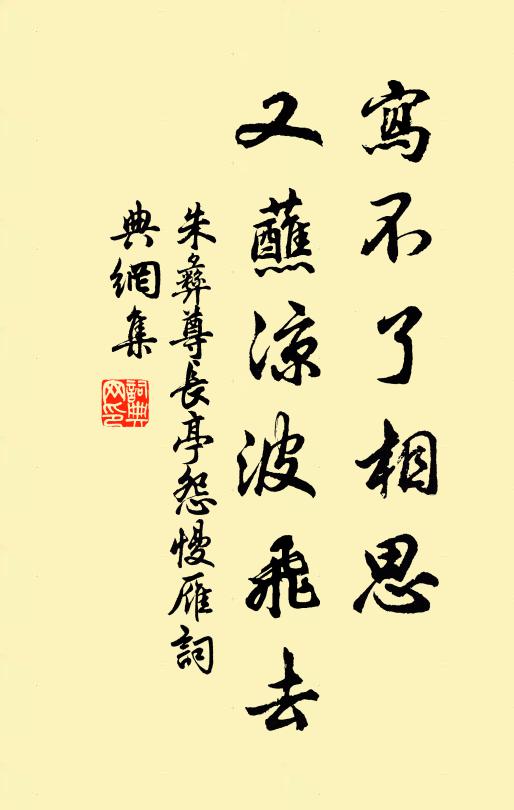 寫不了相思
又蘸涼波飛去
朱彝尊長亭怨慢雁詞
典網集
詞典網印